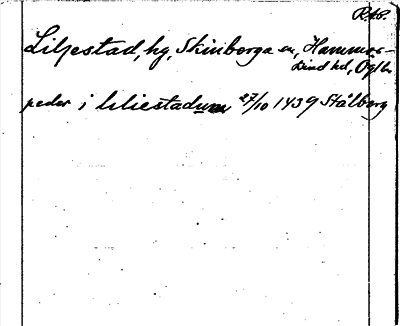 RAP.
Liljestad, hg, Skinborga sn, Hammar-
kind hd, Ögtl.
peder i liliestadum 27/10 1439 Stålborg